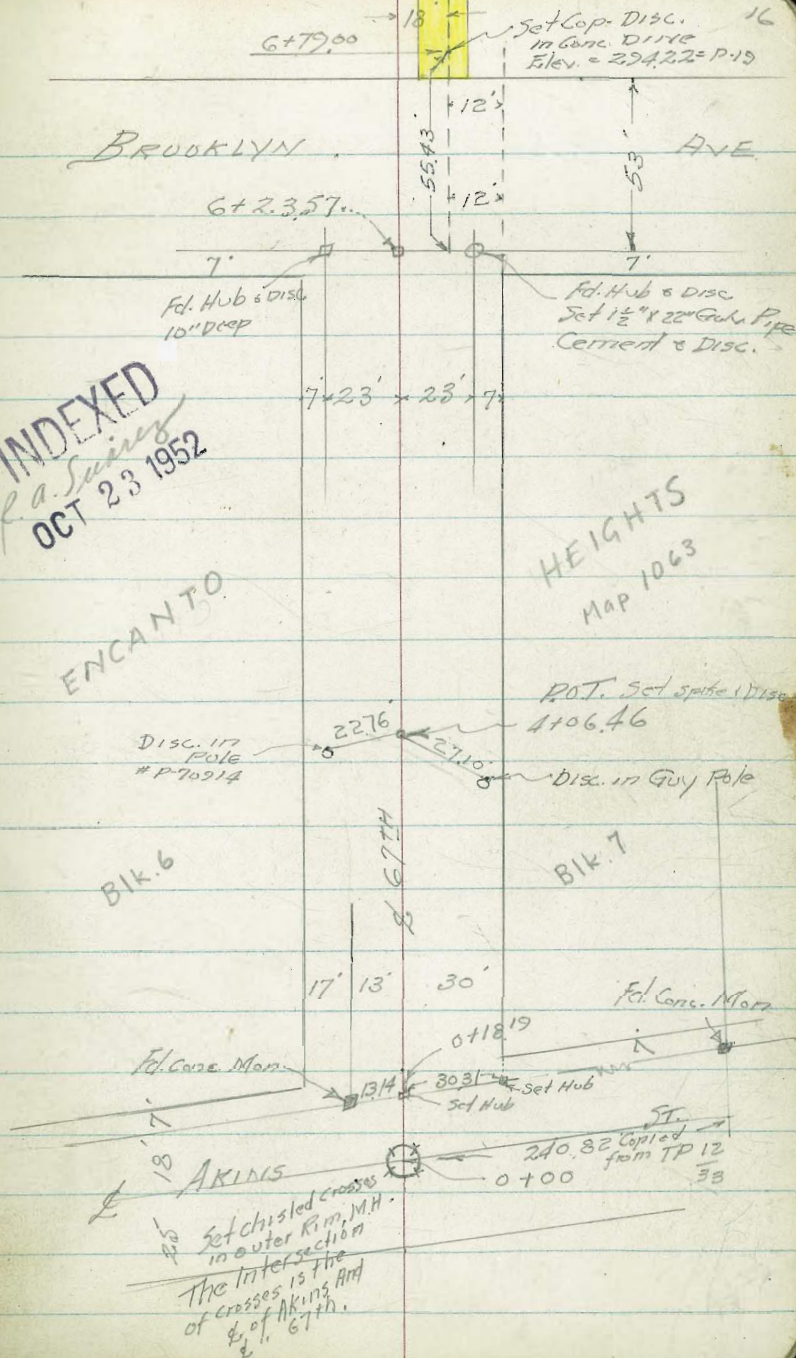 18'
16
6+79.00
Set Cop. Disc.
in Conc. Drive
Elev. = 294.22 = P-19
12'
BROOKLYN
AVE
55.43'
53'
12'
6+23.57
7'
7'
Fd. Hub & Disc
10" Deep
Fd. Hub & Disc
Set 1½" x 22" Galv. Pipe
Cement & Disc.
7' 23' 23' 7'
INDEXED
R.A. Suarez
OCT 23 1952
ENCANTO
HEIGHTS
Map 1063
P.O.T. Set Spike & Disc
4+06.46
22.76'
27.10'
Disc. in
Pole
# P-70914
Disc. in Guy Pole
℄ 67TH
Blk. 6
Blk. 7
17' 13' 30'
Fd. Conc. Mon
0+18.19
7'
Fd. Conc. Mon.
13.14
30.31
Set Hub
Set Hub
7'
18'
25'
℄ AKINS
ST.
240.82 Copied
from TP 12
33
0+00
Set chisled crosses
in outer Rim, M.H.
The Intersection
of crosses is the
℄ of Akins And
℄ " 67th.